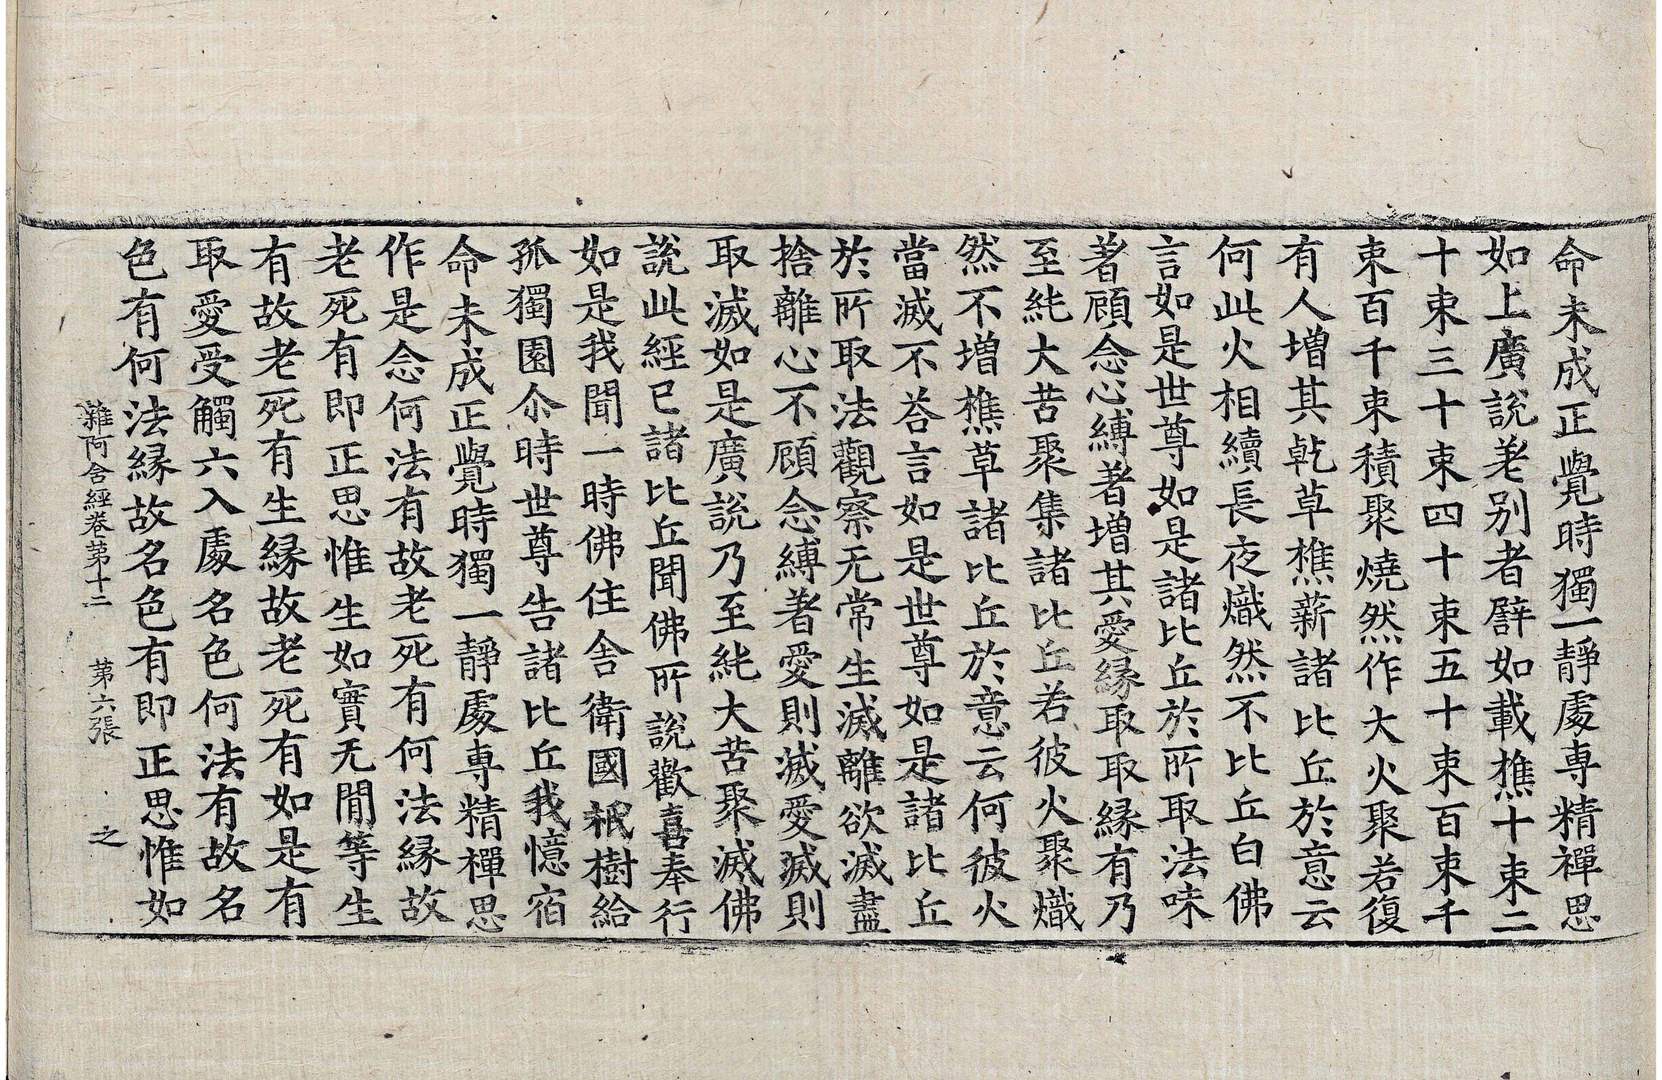 命未成正覺時獨一靜處專精禪思
如上廣說差别者譬如載樵十束二
十束三十束四十束五十束百束千
束百千束積聚燒然作大火聚若復
有人增其乾草樵薪諸比丘於意云
何此火相續長夜熾然不比丘白佛
言如是世尊如是諸比丘於所取法味
著顧念心縛著增其愛緣取取緣有乃
至純大苦聚集諸比丘若彼火聚熾
然不增樵草諸比丘於意云何彼火
當滅不荅言如是世尊如是諸比丘
於所取法觀察无常生滅離欲滅盡
捨離心不顧念縛著愛則滅愛滅則
取滅如是廣說乃至純大苦聚滅佛
說此經已諸比丘聞佛所說歡喜奉行
如是我聞一時佛住舍衛國祇樹給
孤獨園尒時世尊告諸比丘我憶宿
命未成正覺時獨一靜處專精禪思
作是念何法有故老死有何法緣故
老死有即正思惟生如實无閒等生
有故老死有生緣故老死有如是有
取愛受觸六入處名色何法有故名
色有何法緣故名色有即正思惟如
雜阿含經卷第十二 第六張 之